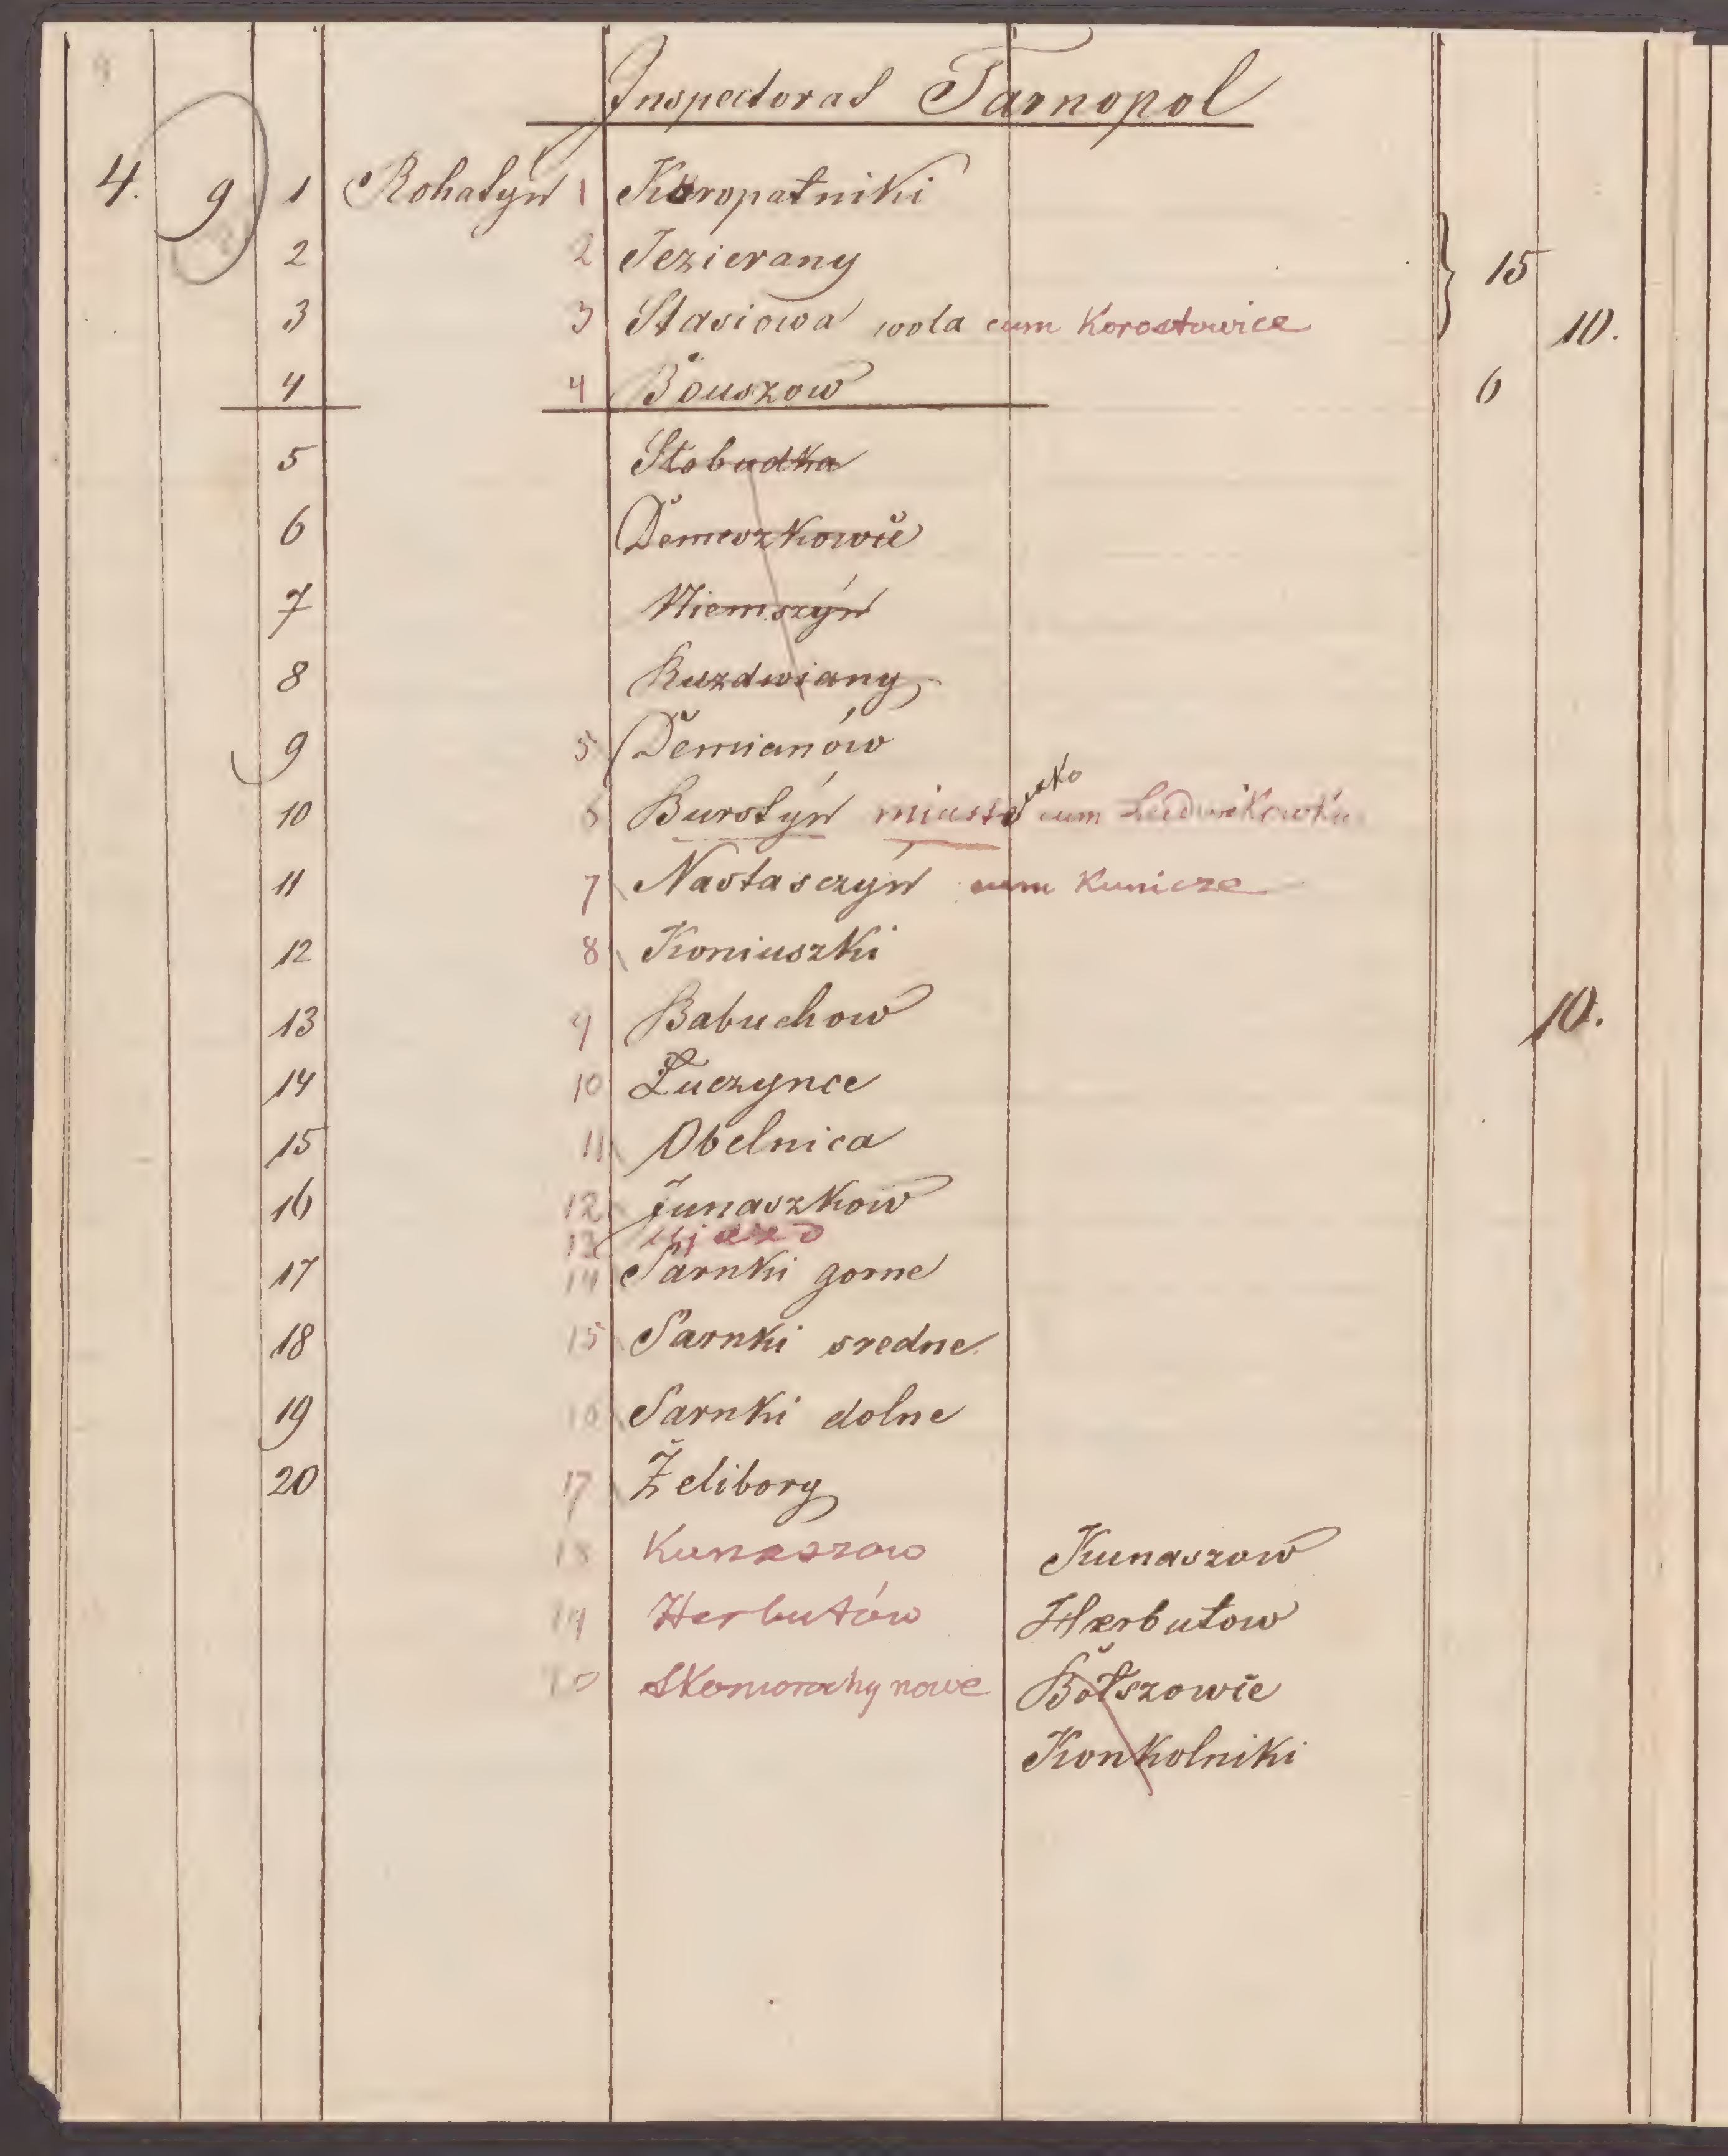 Inspectorat Tarnopol
4. 9 1 Rohatyn 1 Kuropatniki
2 2 Jezierany 15
3 3 Stasiowa wola cum Korostowice 10.
4 4 Bouszow 6
5 Słobudka
6 Demeszkowie
7 Niemszyn
8 Ruzdwiany
9 5 Demianów
10 6 Burstyn miasteczko cum Ludwikowka
11 7 Nastasczyn cum Kunicze
12 8 Koniuszki
13 9 Babuchow 10.
14 10 Łuczynce
15 11 Obelnica
16 12 Junaszkow
13
17 14 Sarnki gorne
18 15 Sarnki sredne
19 16 Sarnki dolne
20 17 Żelibory
18 Kunaszow Kunaszow
19 Herbutów Herbutow
20 Skomorochy nowe Bołszowie
Konkolniki